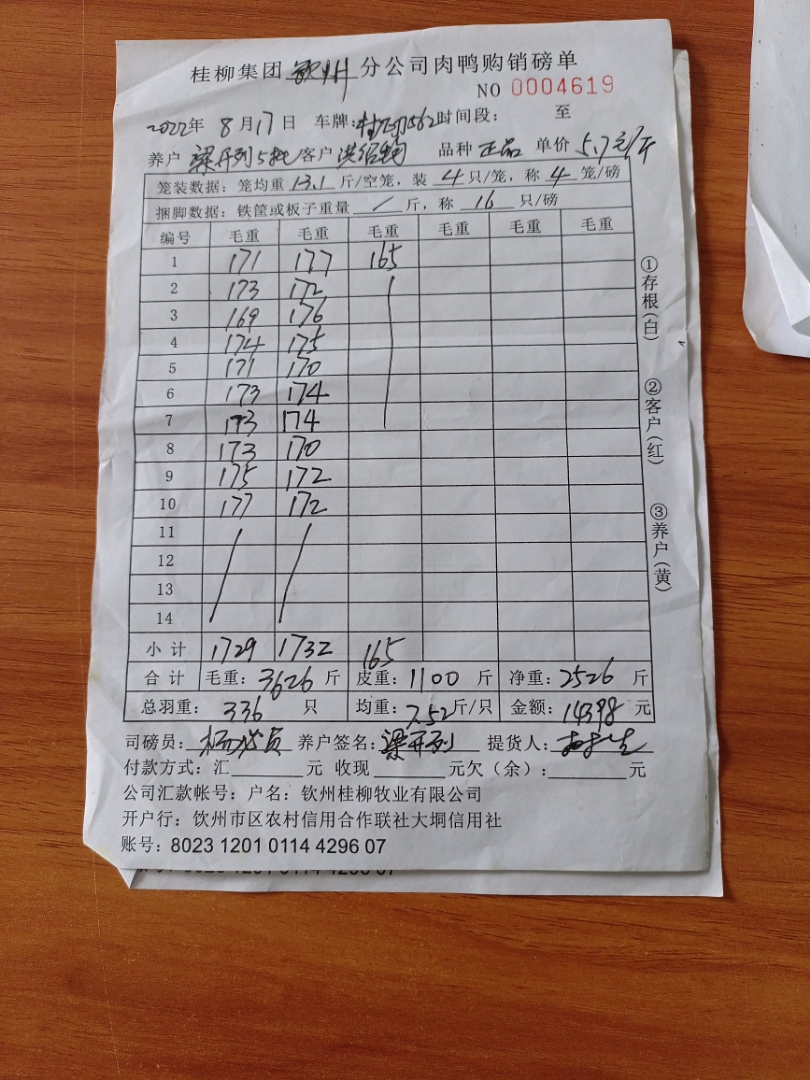 桂柳集团 钦州 分公司肉鸭购销磅单
NO 0004619
2022年 8月17日 车牌: 562时间段: 至
养户 梁开列5批/客户 品种 正品 单价 5.7元/斤
笼装数据:笼均重 13.1 斤/空笼,装 4 只/笼,称 4 笼/磅
捆脚数据:铁筐或板子重量 / 斤,称 16 只/磅
编号 毛重 毛重 毛重 毛重 毛重 毛重
1 171 177 165
2 173 172
3 169 176
4 174 175
5 171 170
6 173 174
7 173 174
8 173 170
9 175 172
10 177 172
11
12
13
14
小计 1729 1732 165
合计 毛重:3626 斤 皮重:1100 斤 净重:2526 斤
总羽重: 336 只 均重:7.52斤/只 金额:14398 元
司磅员: 养户签名:梁开列 提货人:
付款方式:汇 元 收现 元欠(余): 元
公司汇款帐号:户名:钦州桂柳牧业有限公司
开户行:饮州市区农村信用合作联社大垌信用社
账号:8023 1201 0114 4296 07
①存根(白)
②客户(红)
③养户(黄)